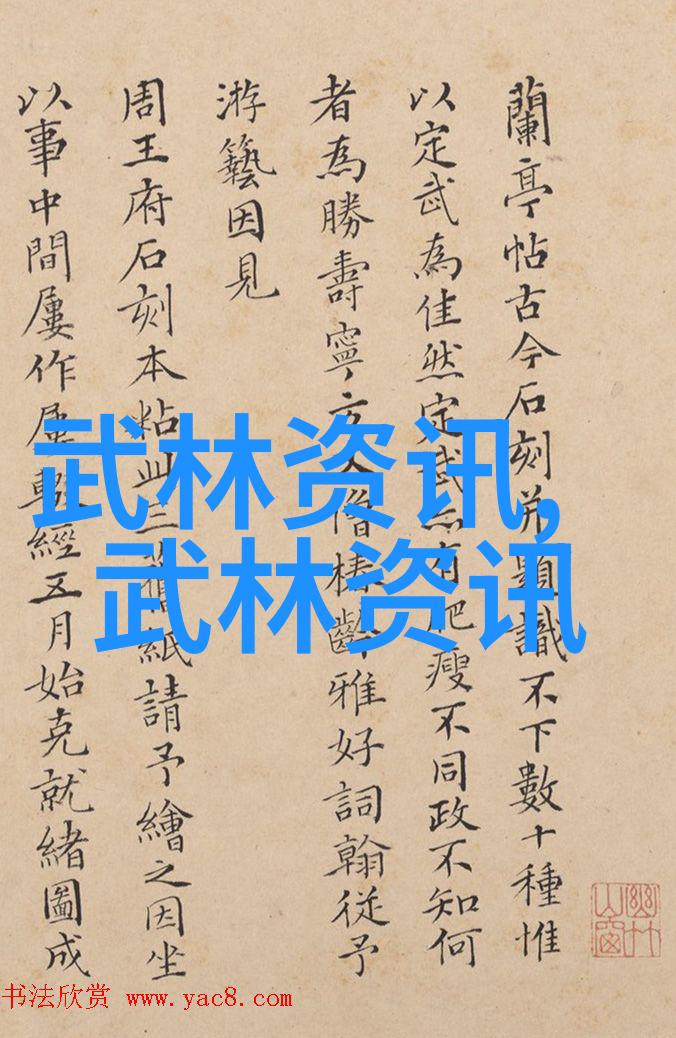 蘭亭帖古今石刻并題識不下數十種惟
以定武為佳然定武亦有肥瘦不同政不知何
者為勝壽寧方丈僧椿齡雅好詞翰從予
游藝因見
周王府石刻本粘此三舊紙請予繪之因坐
以事中間屢作屢輟經五月始克就緒圖成
武林资讯,
武林资讯
书法欣赏 www.yac8.com